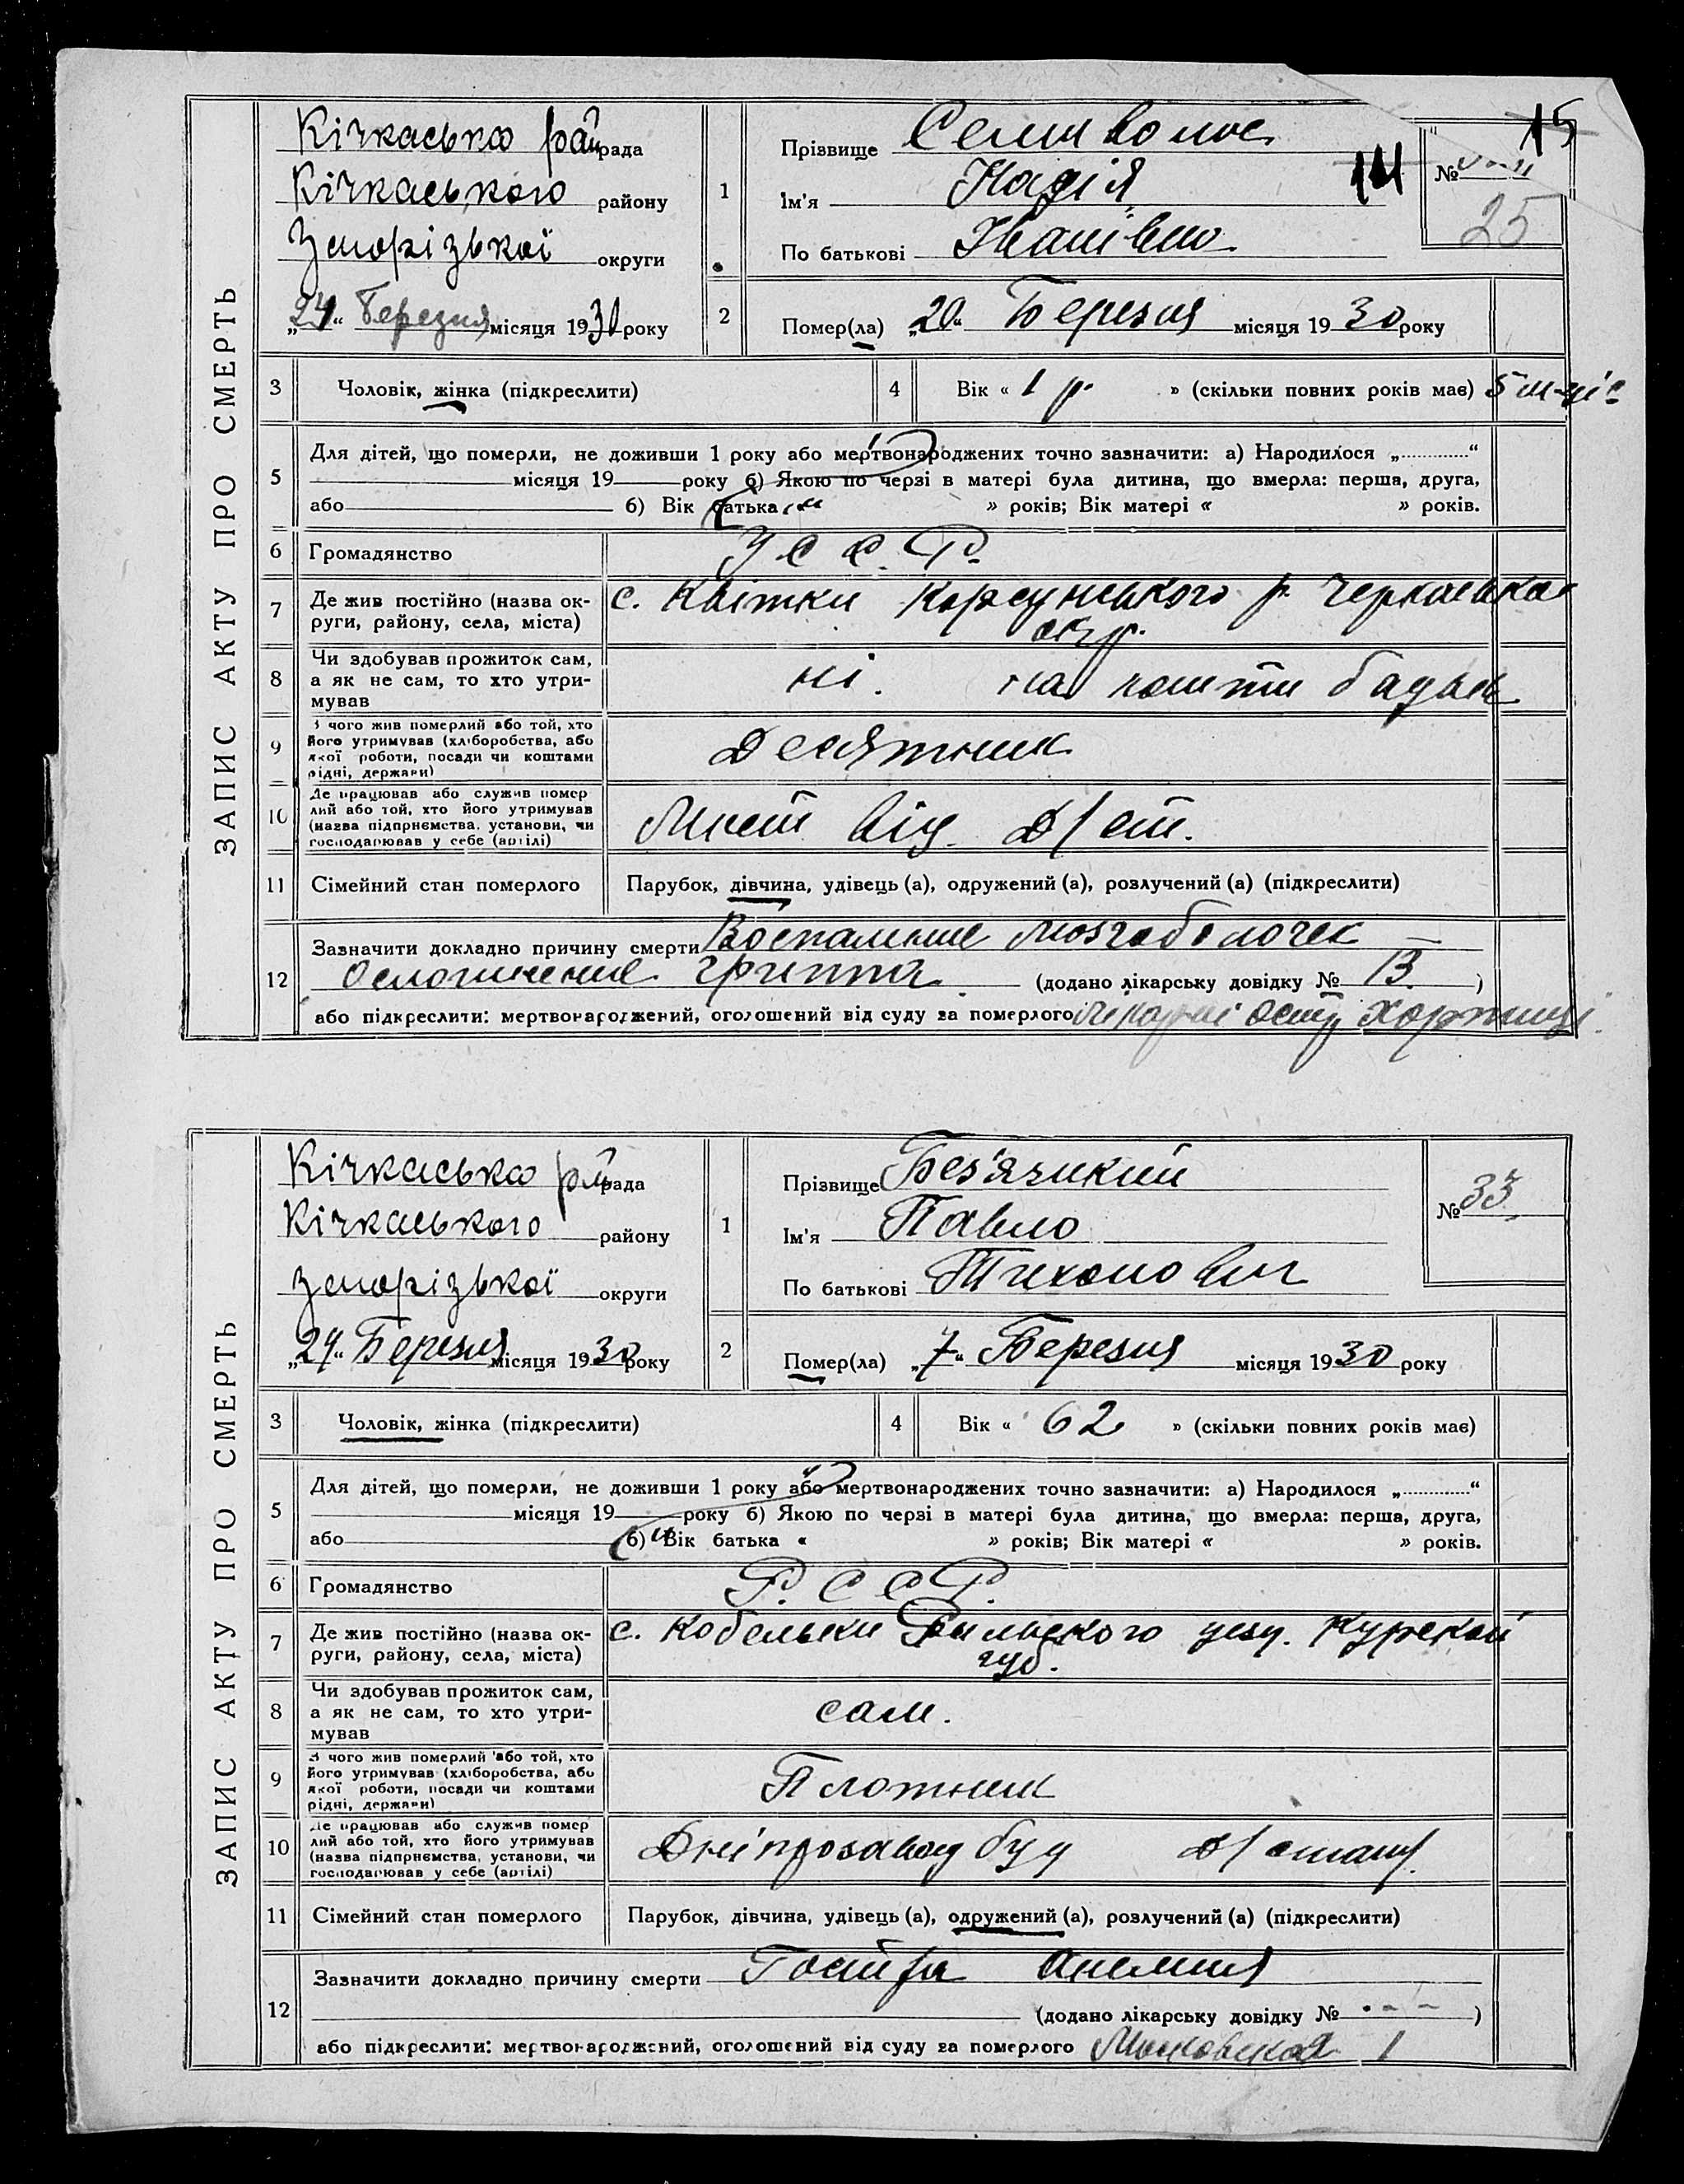 15
ЗАПИС АКТУ ПРО СМЕРТЬ
Кічкаська рай рада
Кічкаського району
Запорізької округи
„24“ Березня місяця 1930 року
1
Прізвище Семиволос
Ім'я Надія
По батькові Іванівна
141
№
25
2
Помер(ла) „20“ Березня місяця 1930 року
3
Чоловік, жінка (підкреслити)
4
Вік « 1 р. » (скільки повних років має) 5 м-ців
5
Для дітей, що померли, не доживши 1 року або мертвонароджених точно зазначити: а) Народилося „............“
місяця 19 року б) Якою по черзі в матері була дитина, що вмерла: перша, друга,
або б) Вік батька « » років; Вік матері « » років.
6
Громадянство
У С С Р.
7
Де жив постійно (назва ок-
руги, району, села, міста)
с. Квітки Корсунського р. Черкаської
окр.
8
Чи здобував прожиток сам,
а як не сам, то хто утри-
мував
ні. на кошти батьків
9
З чого жив померлий або той, хто
його утримував (хліборобства, або
якої роботи, посади чи коштами
рідні, держави)
Десятник
10
Де працював або служив помер
лий або той, хто його утримував
(назва підприємства, установи, чи
господарював у себе (артілі)
Мост від. Д/ст.
11
Сімейний стан померлого
Парубок, дівчина, удівець (а), одружений (а), розлучений (а) (підкреслити)
12
Зазначити докладно причину смерти Воспаление мозгоболочек
осложнение гриппа. (додано лікарську довідку № 13. )
або підкреслити: мертвонароджений, оголошений від суду за померлого Хортиці.
ЗАПИС АКТУ ПРО СМЕРТЬ
Кічкаська рай рада
Кічкаського району
Запорізької округи
„24“ Березня місяця 1930 року
1
Прізвище Без'язикий
Ім'я Павло
По батькові Тихонович
№ 33
2
Помер(ла) „7“ Березня місяця 1930 року
3
Чоловік, жінка (підкреслити)
4
Вік « 62 » (скільки повних років має)
5
Для дітей, що померли, не доживши 1 року або мертвонароджених точно зазначити: а) Народилося „............“
місяця 19 року б) Якою по черзі в матері була дитина, що вмерла: перша, друга,
або б) Вік батька « » років; Вік матері « » років.
6
Громадянство
Р. С С Р.
7
Де жив постійно (назва ок-
руги, району, села, міста)
с. Кобельки Рильского уезд. Курской
губ.
8
Чи здобував прожиток сам,
а як не сам, то хто утри-
мував
сам.
9
З чого жив померлий або той, хто
його утримував (хліборобства, або
якої роботи, посади чи коштами
рідні, держави)
Плотник
10
Де працював або служив помер
лий або той, хто його утримував
(назва підприємства, установи, чи
господарював у себе (артілі)
Дніпрозаводбуд Д/станц.
11
Сімейний стан померлого
Парубок, дівчина, удівець (а), одружений (а), розлучений (а) (підкреслити)
12
Зазначити докладно причину смерти Гостра Анемия
(додано лікарську довідку № )
або підкреслити: мертвонароджений, оголошений від суду за померлого